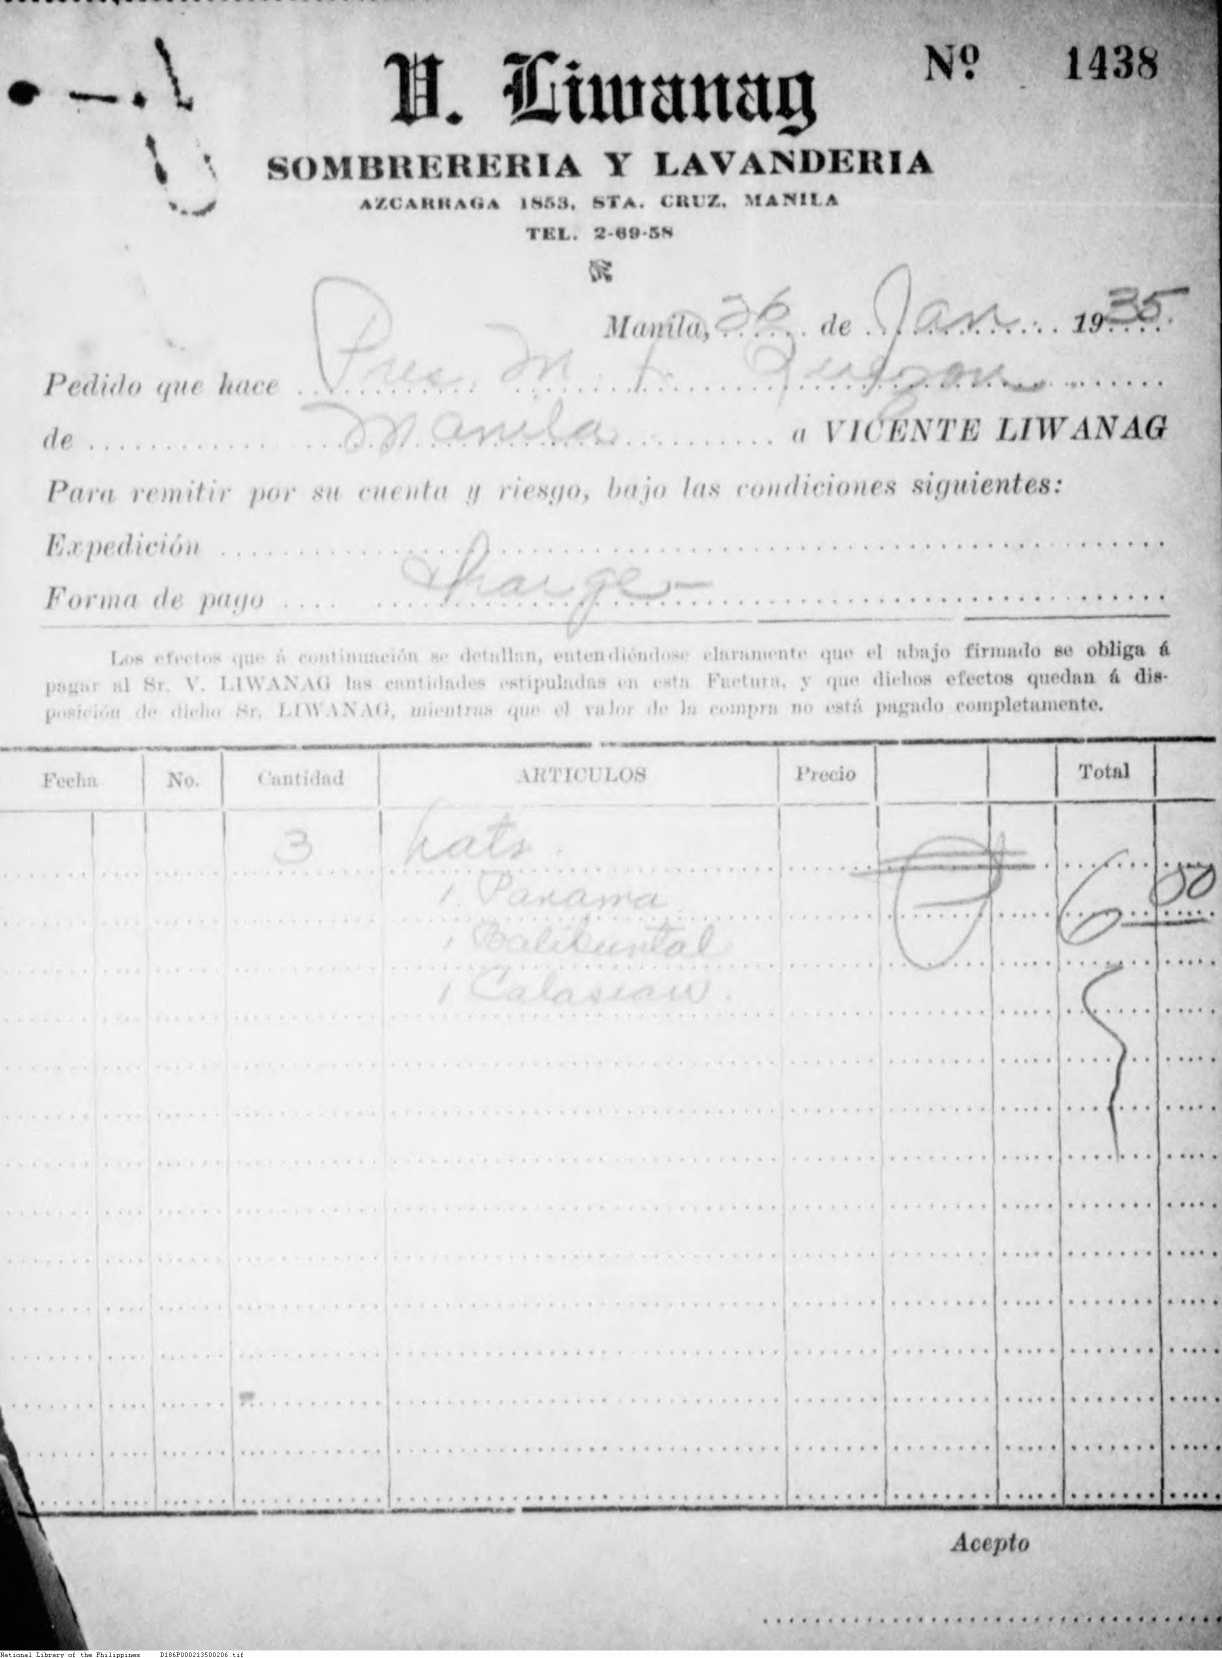 V. Liwanag
Nº 1438
SOMBRERERIA Y LAVANDERIA
AZCARRAGA 1853, STA. CRUZ, MANILA
TEL. 2-69-58
Manila, 26 de Jan 1935
Pedido que hace Pres. M. L. Quezon
de Manila a VICENTE LIWANAG
Para remitir por su cuenta y riesgo, bajo las condiciones siguientes:
Expedición
Forma de pago Charge
Los efectos que á continuación se detallan, entendiéndose claramente que el abajo firmado se obliga á
pagar al Sr. V. LIWANAG las cantidades estipuladas en esta Factura, y que dichos efectos quedan á dis-
posición de dicho Sr. LIWANAG, mientras que el valor de la compra no está pagado completamente.
Fecha No. Cantidad ARTICULOS Precio Total
3 hats. ₱ 6 00
1 Panama
1 Balibuntal
1 Calasiaw.
Acepto
National Library of the Philippines D186P000213500206.tif